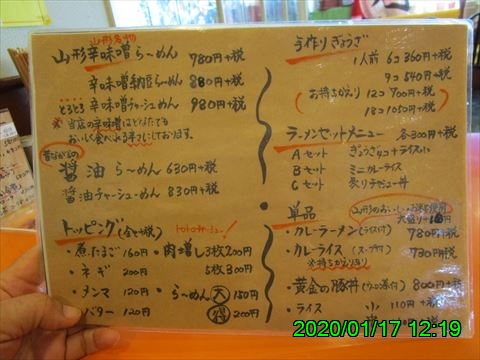 山形名物
山形辛味噌らーめん 780円+税
辛味噌納豆らーめん 880円+税
とろとろ 辛味噌チャーシューめん 980円+税
※当店の辛味噌はどなたでも
おいしく食べれる辛さにしております。
昔ながらの
醤油らーめん 630円+税
醤油チャーシューめん 830円+税
トッピング(各+税)
・煮たまご 160円
・ネギ 200円
・メンマ 120円
・バター 120円
・肉増し 3枚200円
5枚300円
・らーめん 大 150円
得 200円
手作りぎょうざ
1人前 6コ 360円+税
9コ 540円+税
(お持ちかえり 12コ 700円+税
18コ 1050円+税)
ラーメンセットメニュー 各300円+税
Aセット ぎょうざ4コ+ライス小
Bセット ミニカレーライス
Cセット 炙りチャシュー丼
単品
・カレーラーメン(ライス付) 980円+税
・カレーライス(スープ付) 730円+税
※持ちかえり有り
・黄金の豚丼 800円+税
・ライス 小 110円+税
2020/01/17 12:19